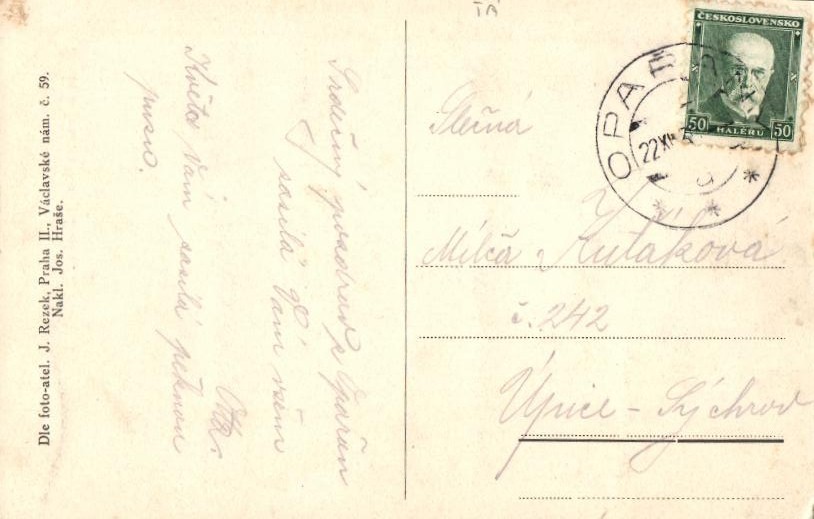 Dle foto-atel. J. Rezek, Praha II., Václavské nám. č. 59.
Nakl. Jos. Hraše.
Srdečný pozdrav z Opařan
zasílá Vám všem
Květa Vám zasílá pěknou
pusu.
Slečna
Milča Kuťáková
č. 242
Úpice - Sychrov
ČESKOSLOVENSKO
50 HALÉRŮ 50
OPAŘ
22 XII